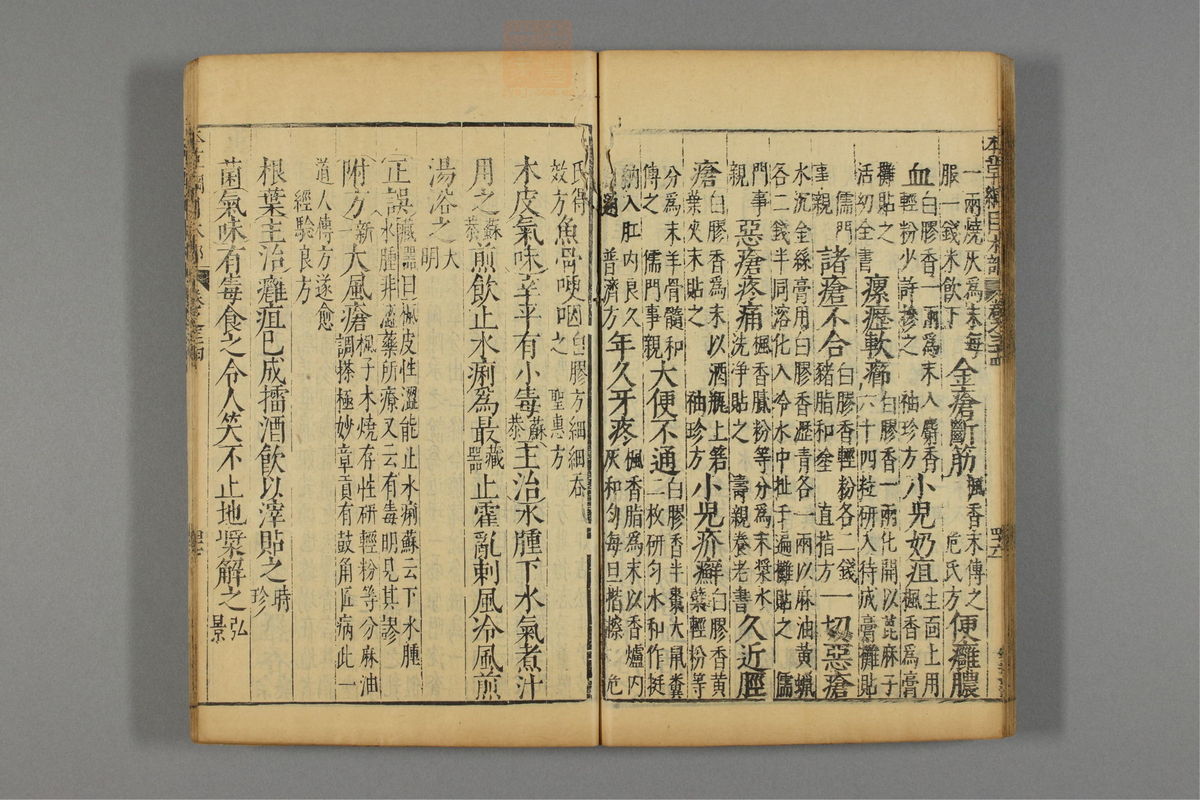 本草綱目木部 卷之三十四 四十六
一兩燒灰為末每服一錢米飲下 金瘡斷筋 楓香末傅之 危氏方 便癰膿
血 白膠香一兩為末入麝香輕粉少許摻之 袖珍方 小兒奶疽 生面上用楓香為膏
攤貼之 活幼全書 瘰癧軟癤 白膠香一兩化開以蓖麻子六十四粒研入待成膏攤貼
儒門事親 諸瘡不合 白膠香輕粉各二錢豬脂和塗 直指方 一切惡瘡
水沉金絲膏用白膠香瀝青各一兩以麻油黃蠟各二錢半同溶化入冷水中扯千遍攤貼之 儒
門事親 惡瘡疼痛 楓香膩粉等分為末漿水洗淨貼之 壽親養老書 久近脛
瘡 白膠香為末以酒瓶上箬葉夾末貼之 袖珍方 小兒疥癬 白膠香黃蘗輕粉等
分為末羊骨髓和傅之 儒門事親 大便不通 白膠香半棗大鼠糞二枚研勻水和作挺
納入肛內良久 普濟方 年久牙疼 楓香脂為末以香爐內灰和勻每旦揩擦 危
氏得效方 魚骨哽咽 白膠方細細吞之 聖惠方
木皮氣味辛平有小毒蘇恭主治水腫下水氣煮汁
用之蘇恭煎飲止水痢為最藏器止霍亂刺風冷風煎
湯浴之大明
正誤 藏器曰楓皮性澀能止水痢蘇云下水腫水腫非澀藥所療又云有毒明見其謬
附方新一 大風瘡 楓子木燒存性研輕粉等分麻油調搽極妙章貢有鼓角匠病此一
道人傳方遂愈 經驗良方
根葉主治癰疽已成擂酒飲以滓貼之時珍
菌氣味有毒食之令人笑不止地漿解之弘景